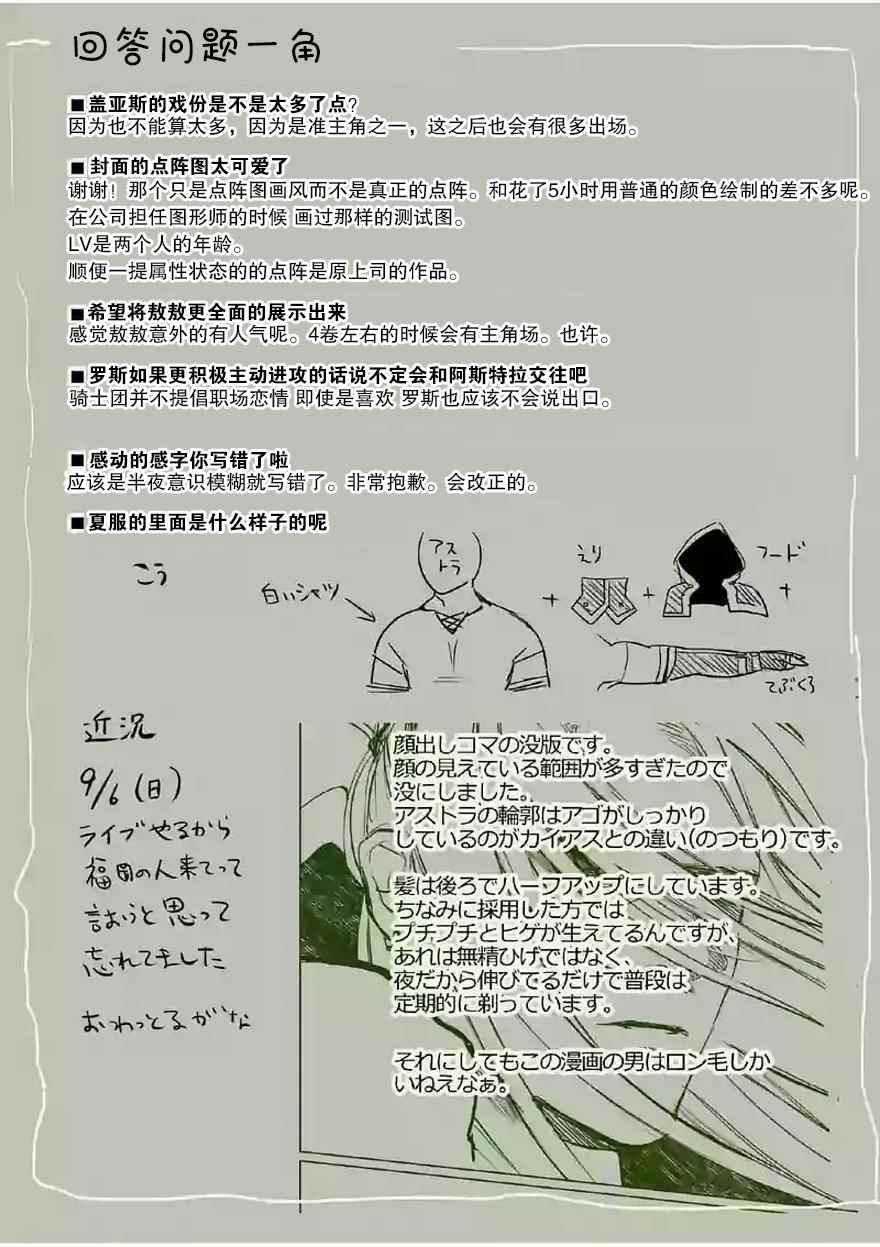 回答问题一角
■盖亚斯的戏份是不是太多了点?
因为也不能算太多，因为是准主角之一，这之后也会有很多出场。
■封面的点阵图太可爱了
谢谢！那个只是点阵图画风而不是真正的点阵。和花了5小时用普通的颜色绘制的差不多呢。
在公司担任图形师的时候 画过那样的测试图。
LV是两个人的年龄。
顺便一提属性状态的的点阵是原上司的作品。
■希望将敖敖更全面的展示出来
感觉敖敖意外的有人气呢。4卷左右的时候会有主角场。也许。
■罗斯如果更积极主动进攻的话说不定会和阿斯特拉交往吧
骑士团并不提倡职场恋情 即使是喜欢 罗斯也应该不会说出口。
■感动的感字你写错了啦
应该是半夜意识模糊就写错了。非常抱歉。会改正的。
■夏服的里面是什么样子的呢
こう
白いシャツ
アス
トラ
+
えり
+
フード
+
てぶくろ
近況
9/6(日)
ライブやるから
福岡の人来てって
言おうと思って
忘れてました
おわっとるがな
顔出しコマの没版です。
顔の見えている範囲が多すぎたので
没にしました。
アストラの輪郭はアゴがしっかり
しているのがカイアスとの違い(のつもり)です。
髪は後ろでハーフアップにしています。
ちなみに採用した方では
プチプチとヒゲが生えてるんですが、
あれは無精ひげではなく、
夜だから伸びてるだけで普段は
定期的に剃っています。
それにしてもこの漫画の男はロン毛しか
いねえなぁ。